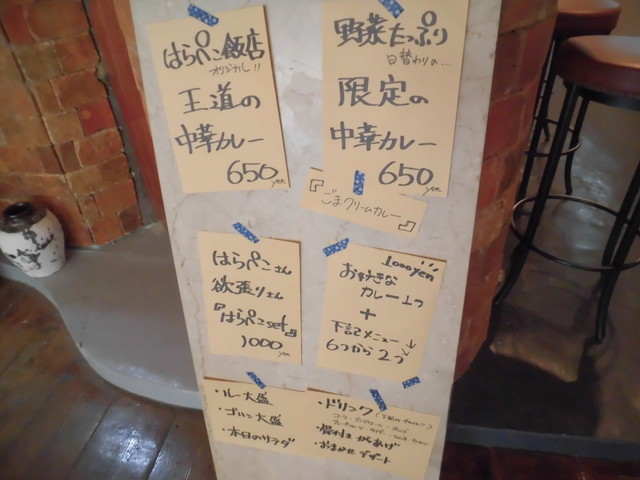 はらぺこ飯店
オリジナル!!
王道の
中華カレー
650
yen
野菜たっぷり
日替わりの…
限定の
中華カレー
650
yen
『ごまクリームカレー』
はらぺこさん
欲張りさん
『はらぺこset』
1000
yen
1000yen
お好きな
カレー1つ
+
下記メニュー↓
6つから2つ
・ルー大盛
・ゴハン大盛
・本日のサラダ
・ドリンク
・骨付きからあげ
・おまかせデザート